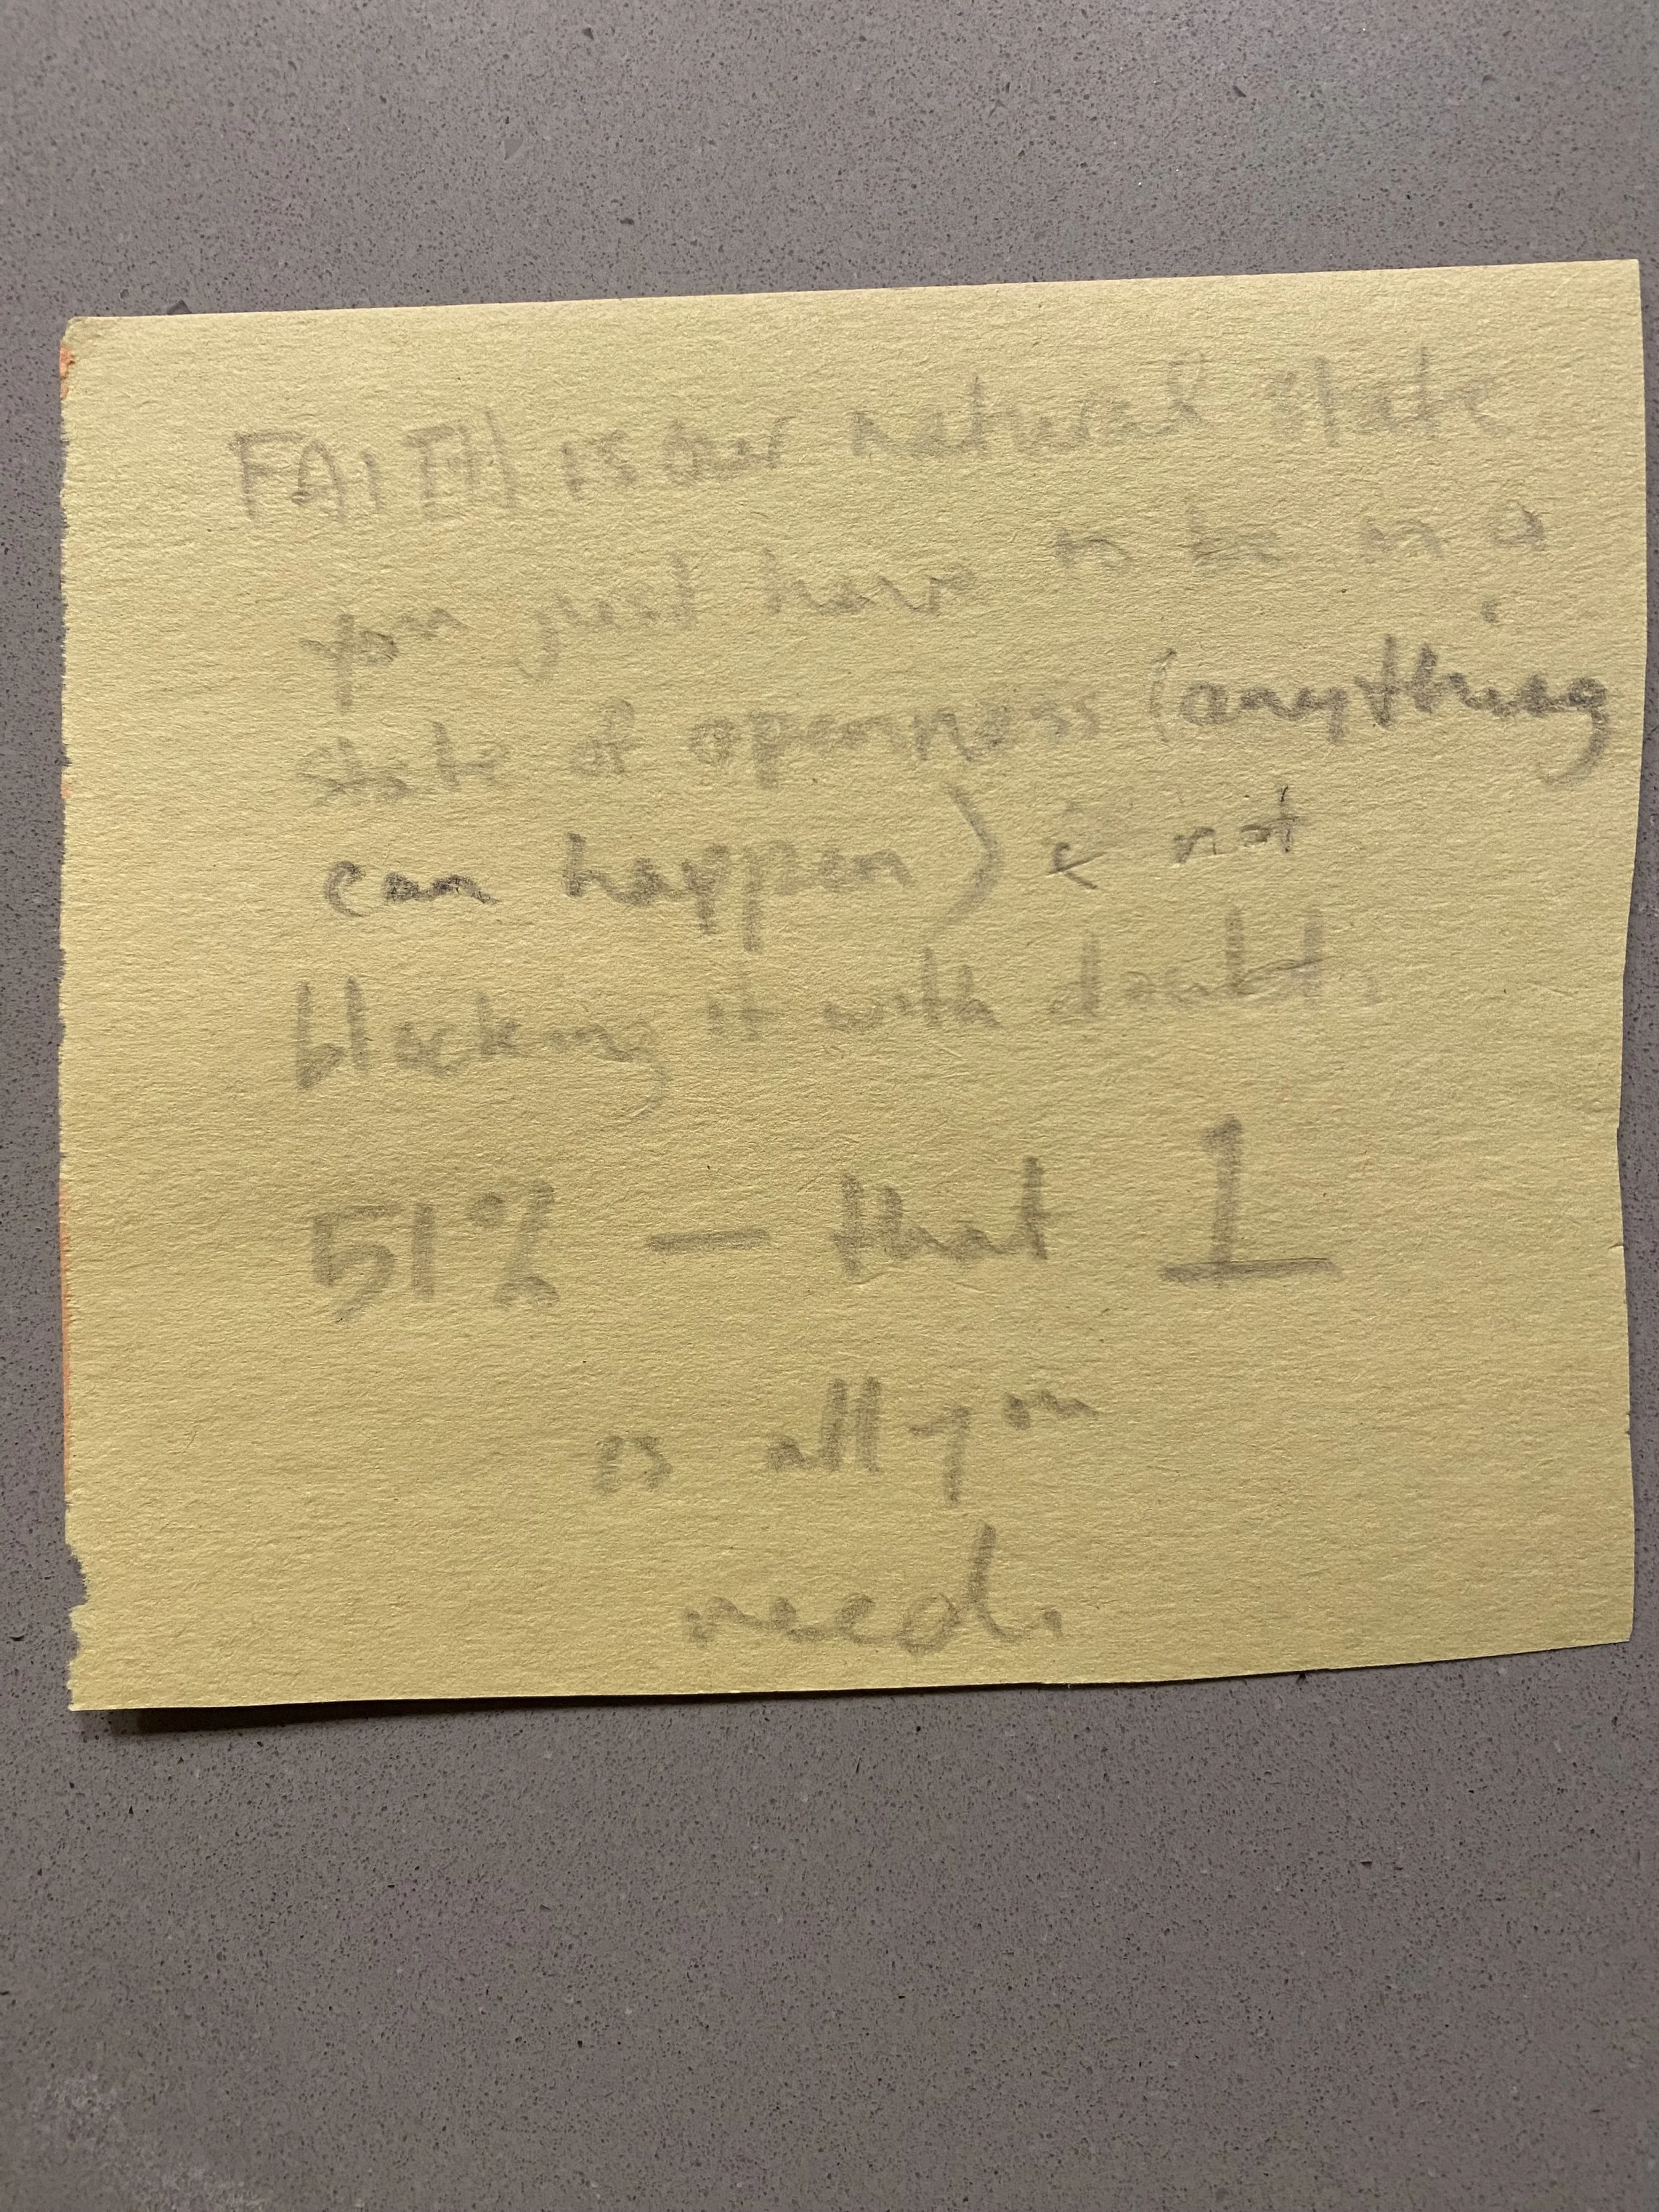 FAITH is our natural state
you just have to be in a
state of openness (anything
can happen) & not
blocking it with doubt.
51% — that 1
is all you
need.